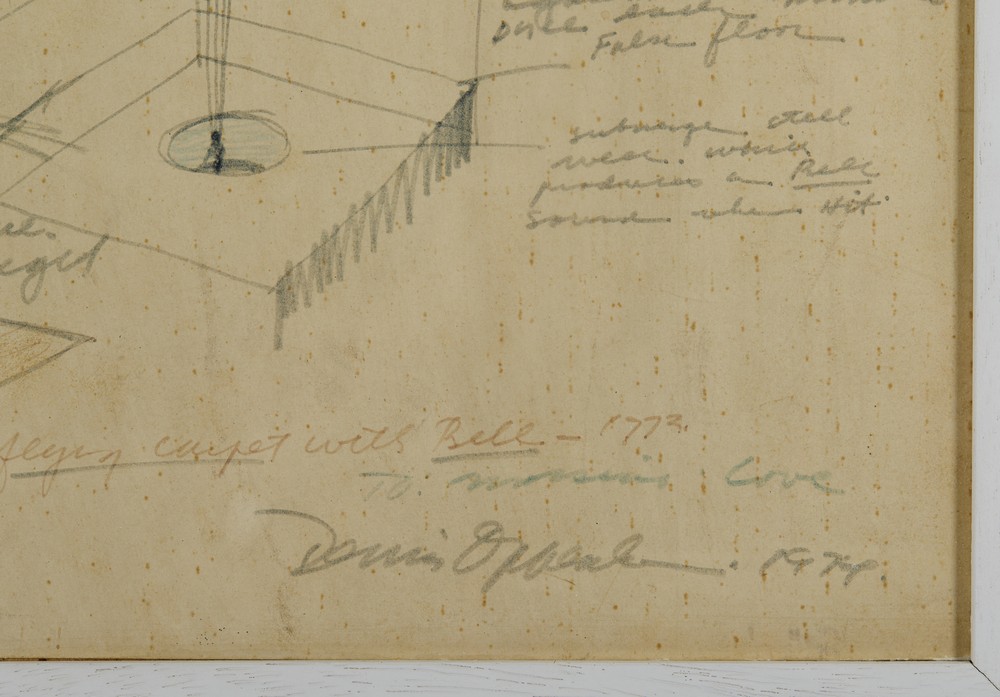 False floor
submerge steel
well. which
produces a Bell
Sound when Hit.
flying carpet with Bell – 1973.
To Love
Dennis Oppenheim. 1974.